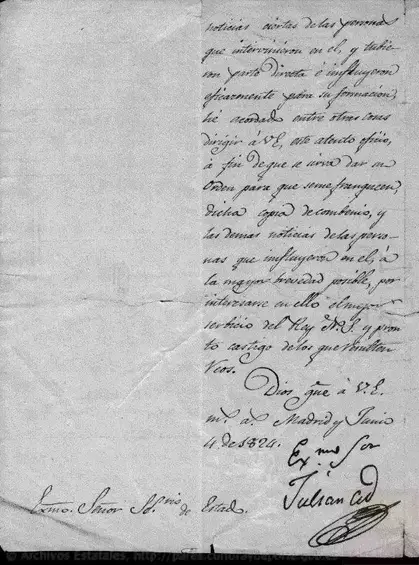 noticias ciertas de las personas
que intervinieron en el, y tubie
ron parte directa é influyeron
eficazmente para su formacion,
hé acordado entre otras cosas
dirigir á V.E, este atento oficio,
á fin de que se sirva dar su
Orden para que se me franqueen,
dicha copia de combenio, y
las demas noticias de las perso-
nas que influyeron en el; á
la mayor brevedad posible, por
interesarse en ello el mejor
serbicio del Rey N.S. y pron
to castigo de los que resulten
reos.
Dios gue á V.E.
ms as Madrid y Junio
4 de 1824.
Exmo Sor
Julian Cid
Exmo. Señor Srio de Estado
Archivos Estatales, http://pares.